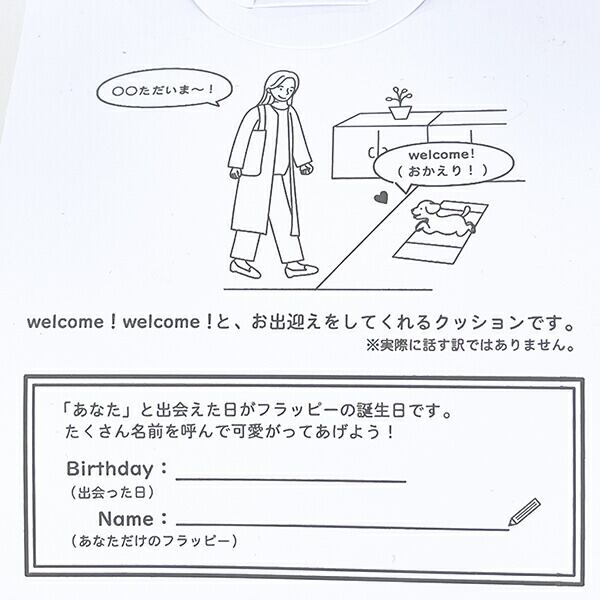 〇〇ただいま〜！
welcome!
（おかえり！）
welcome！welcome！と、お出迎えをしてくれるクッションです。
※実際に話す訳ではありません。
「あなた」と出会えた日がフラッピーの誕生日です。
たくさん名前を呼んで可愛がってあげよう！
Birthday：
（出会った日）
Name：
（あなただけのフラッピー）